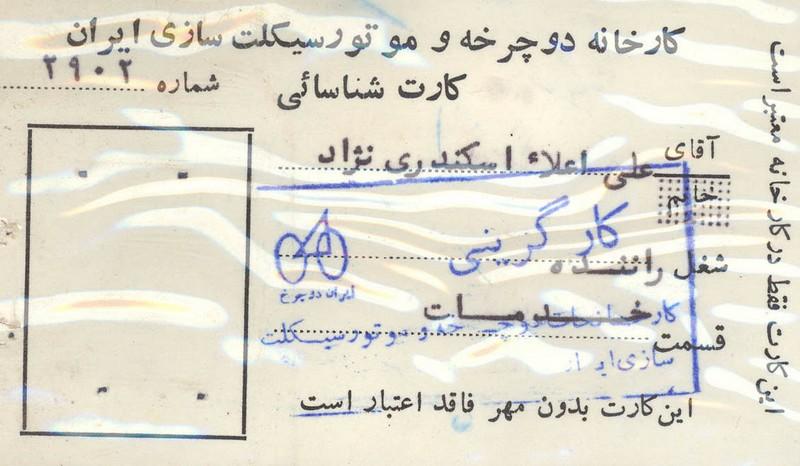 کارخانه دوچرخه و موتورسیکلت سازی ایران
کارت شناسائی
شماره ۲۹۰۲
آقای علی اعلاء اسکندری نژاد
خانم
کارگزینی
شغل راننده
ایران دوچرخ
قسمت خدمات
کارخانجات دوچرخه و موتورسیکلت
سازی ایران
این کارت بدون مهر فاقد اعتبار است
این کارت فقط در کارخانه معتبر است